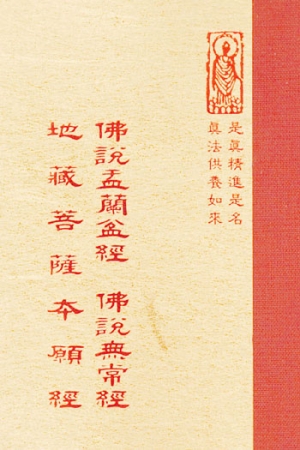 是真精進是名
真法供養如來
佛說盂蘭盆經 佛說無常經
地藏菩薩本願經